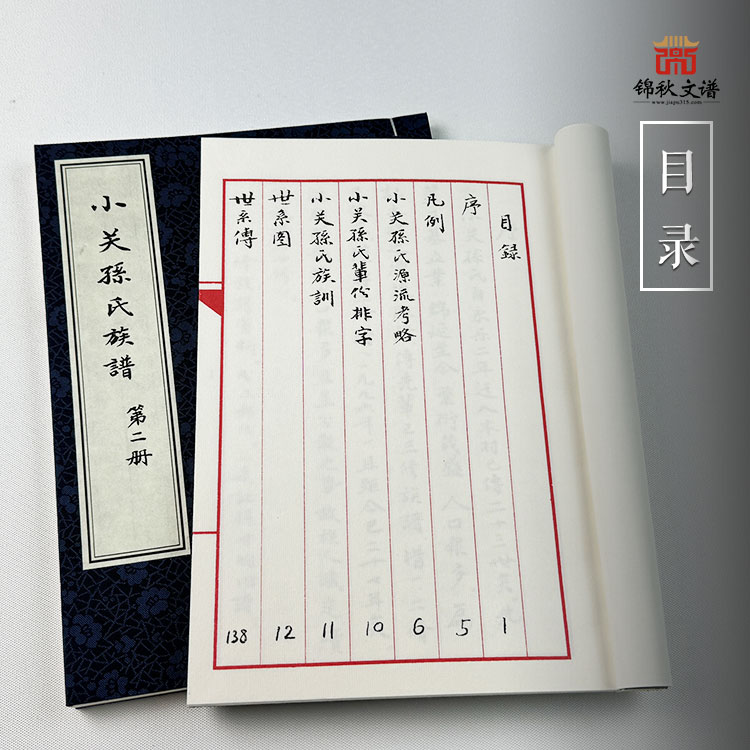 锦秋文谱
www.jiapu315.com
目录
小关孫氏族譜
第二册
目録
序
1
凡例
5
小关孫氏源流考略
6
小关孫氏輩份排字
10
小关孫氏族訓
11
世系图
12
世系傳
138